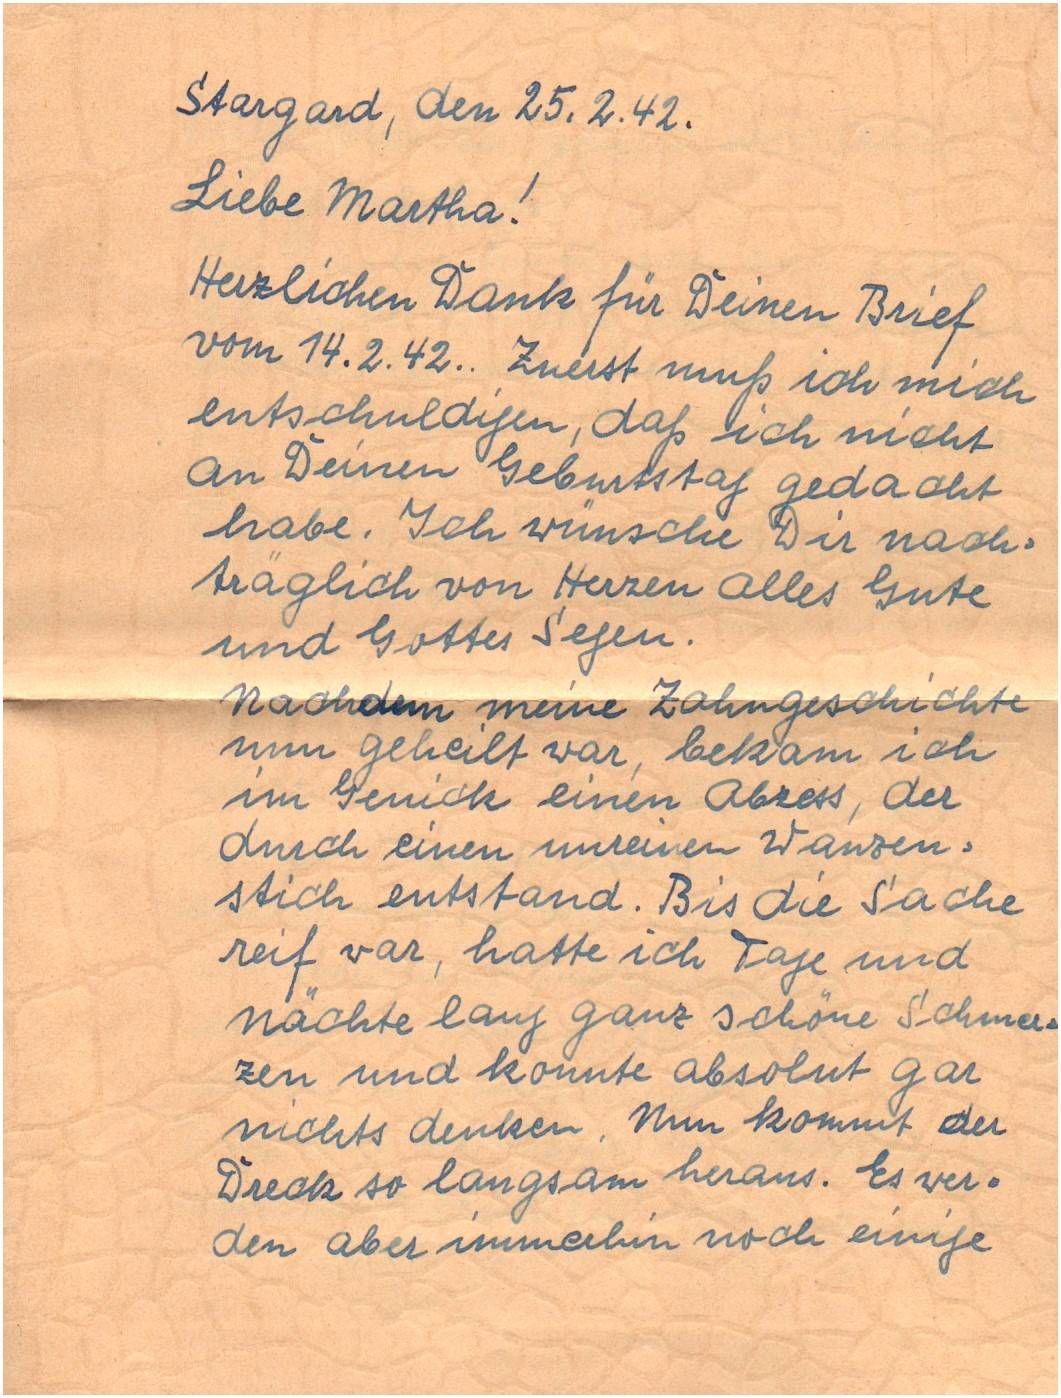 Stargard, den 25.2.42.
Liebe Martha!
Herzlichen Dank für Deinen Brief
vom 14.2.42.. Zuerst muß ich mich
entschuldigen, daß ich nicht
an Deinen Geburtstag gedacht
habe. Ich wünsche Dir nach-
träglich von Herzen alles Gute
und Gottes Segen.
Nachdem meine Zahngeschichte
nun geheilt war, bekam ich
im Genick einen Abzess, der
durch einen unreinen Wanzen-
stich entstand. Bis die Sache
reif war, hatte ich Tage und
Nächte lang ganz schöne Schmer-
zen und konnte absolut gar
nichts denken. Nun kommt der
Dreck so langsam heraus. Es wer-
den aber immerhin noch einige